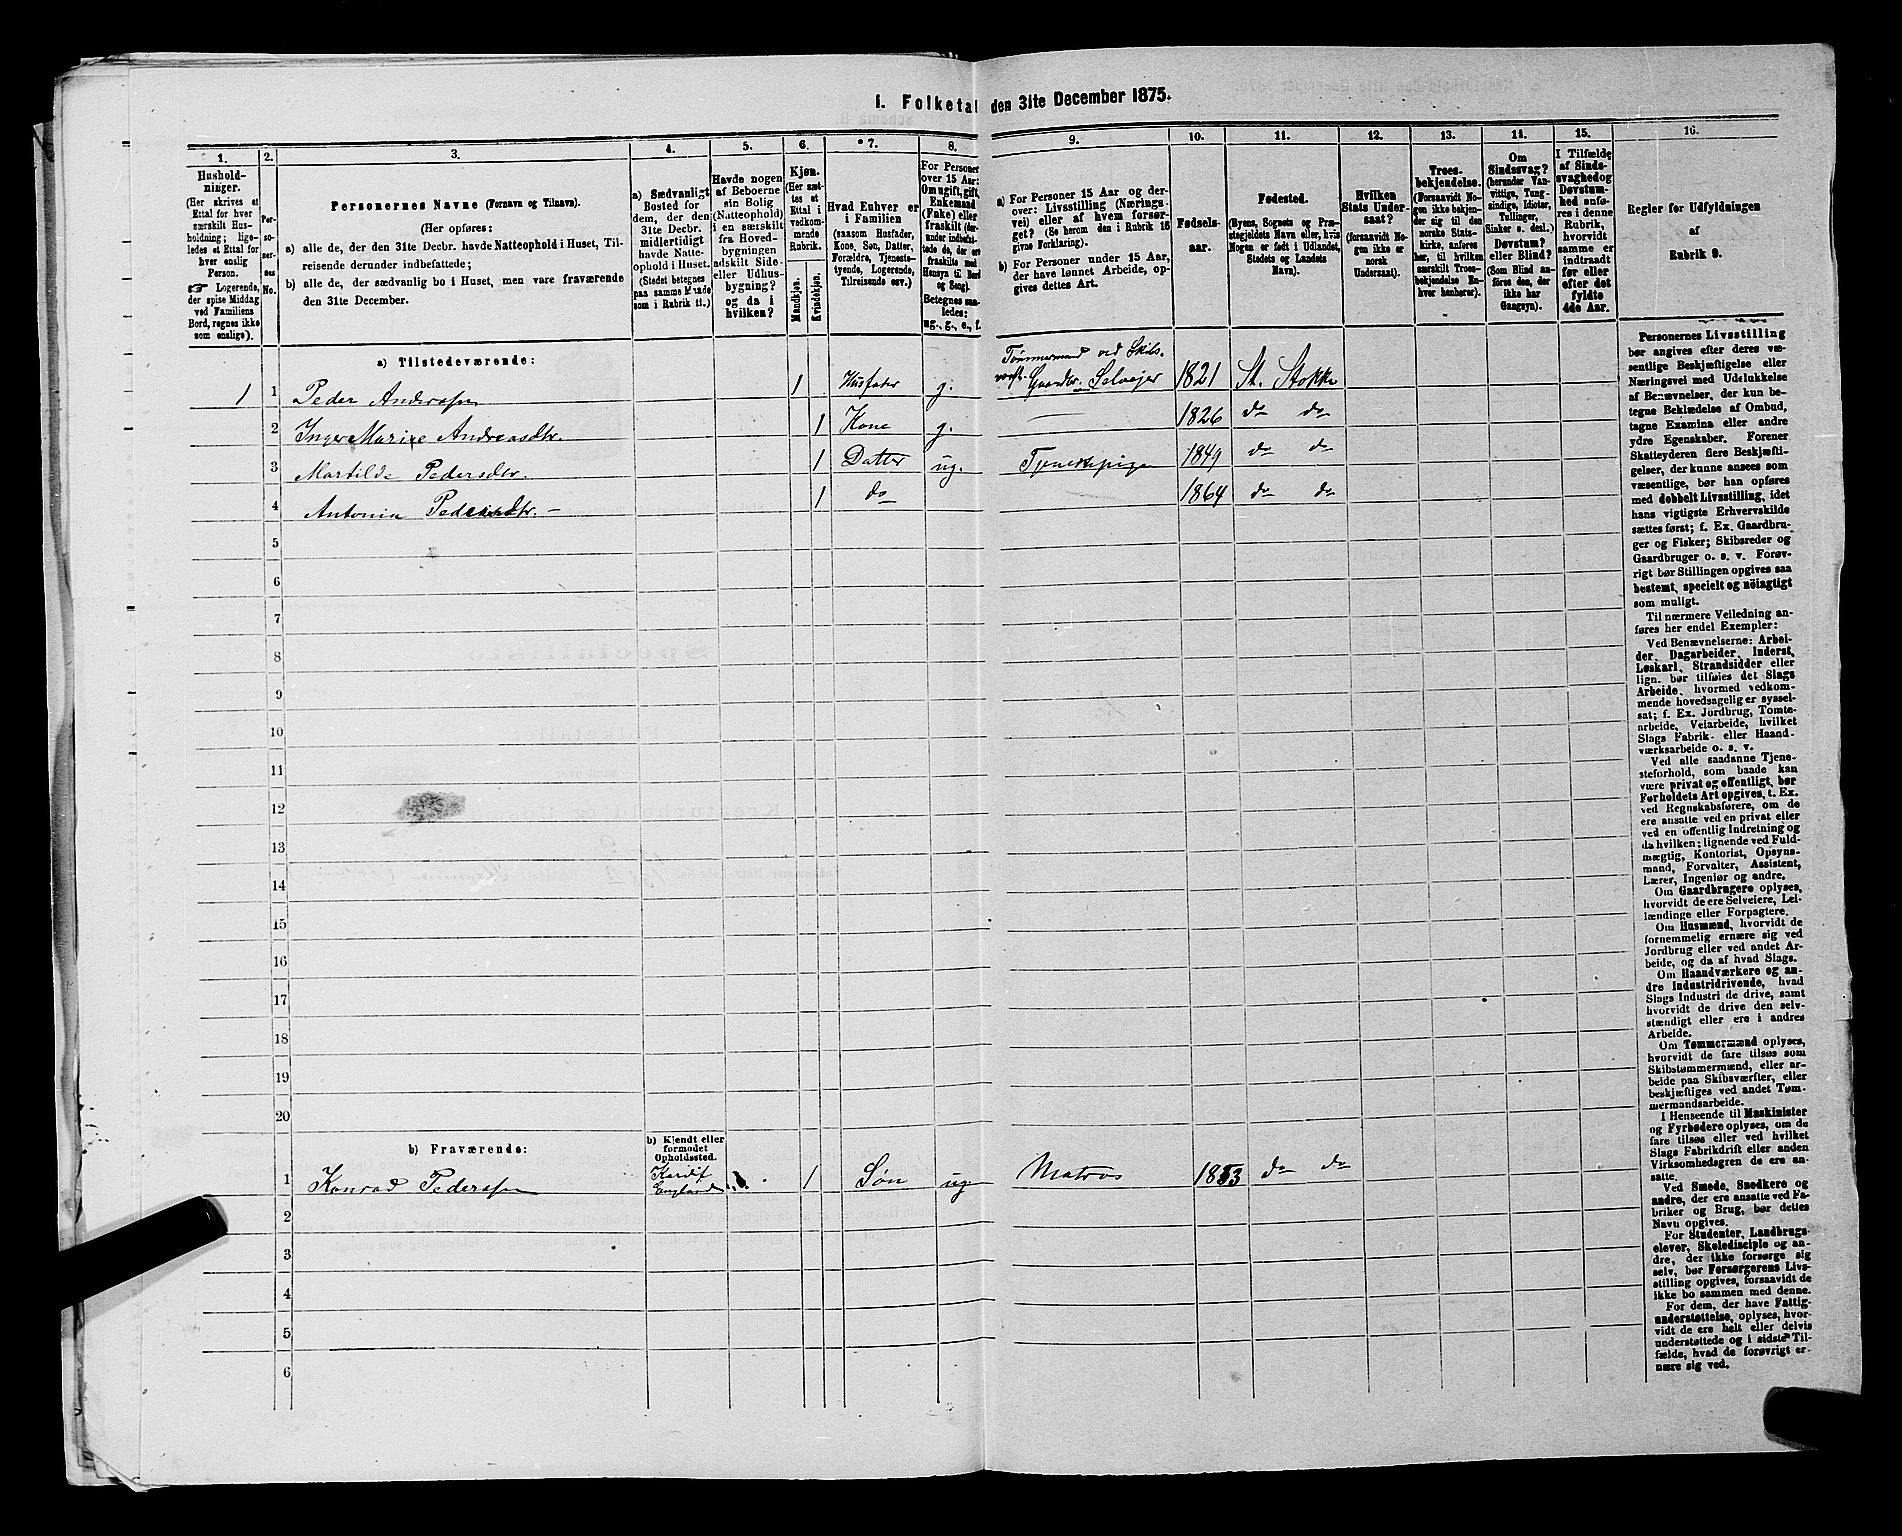 1. Folketal den 31te December 1875.
1.
Hushold-
ninger.
(Her skrives et
Ettal for hver
særskilt Hus-
holdning; lige-
ledes et Ettal for
hver enslig
Person.
☞ Logerende,
der spise Middag
ved Familiens
Bord, regnes ikke
som enslige).
2.
Per-
so-
ner-
nes
No.
3.
Personernes Navne (Fornavn og Tilnavn).
(Her opføres:
a) alle de, der den 31te Decbr. havde Natteophold i Huset, Til-
reisende derunder indbefattede;
b) alle de, der sædvanlig bo i Huset, men vare fraværende
den 31te December.
4.
a) Sædvanligt
Bosted for
dem, der den
31te Decbr.
midlertidigt
havde Natte-
ophold i Huset.
(Stedet betegnes
paa samme Maade
som i Rubrik 11.)
5.
Havde nogen
af Beboerne
sin Bolig
(Natteophold)
i en særskilt
fra Hoved-
bygningen
adskilt Side-
eller Udhus-
bygning?
og da i
hvilken?
6.
Kjøn.
(Her sæt-
tes et
Ettal i
vedkom-
mende
Rubrik.
Mandkjøn.
Kvindekjøn.
7.
Hvad Enhver er
i Familien
(saasom Husfader,
Kone, Søn, Datter,
Forældre, Tjeneste-
tyende, Logerende,
Tilreisende osv.)
8.
For Personer
over 15 Aar:
Om ugift, gift,
Enkemand
(Enke) eller
fraskilt (der-
under indbefat-
tede de, der ere
fraskilte med
Hensyn til Bord
og Seng).
Betegnes saa-
ledes:
ug., g., e., f.
9.
a) For Personer 15 Aar og der-
over: Livsstilling (Nærings-
vei) eller af hvem forsør-
get? (Se herom den i Rubrik 16
givne Forklaring).
b) For Personer under 15 Aar,
der have lønnet Arbeide, op-
gives dettes Art.
10.
Fødsels-
aar.
11.
Fødested.
(Byens, Sognets og Præ-
stegjeldets Navn eller, hvis
Nogen er født i Udlandet,
Stedets og Landets
Navn).
12.
Hvilken
Stats Under-
saat?
(forsaavidt No-
gen ikke er
norsk
Undersaat).
13.
Troes-
bekjendelse.
(Forsaavidt No-
gen ikke bekjen-
der sig til den
norske Stats-
kirke, anføres
her, til hvilken
særskilt Troes-
bekjendelse En-
hver henhører).
14.
Om
Sindssvag?
(herunder Van-
vittige, Tung-
sindige, Idioter,
Tullinger,
Sinker o. desl.)
Døvstum?
eller Blind?
(Som Blind an-
føres den, der
ikke har
Gangsyn).
15.
I Tilfælde
af Sinds-
svaghed og
Døvstum-
hed anfø-
res i denne
Rubrik,
hvorvidt
samme er
indtraadt
før eller
efter det
fyldte
4de Aar.
16.
Regler for Udfyldningen
af
Rubrik 9.
a) Tilstedeværende:
Tømmermand ved Skibs-
1 1 Peder Andersen 1 Husfader g. værft. Gaardbr. Selveier 1821 St. Stokke
2 Inger Marie Andreasdtr. 1 Kone g. — 1826 do do
3 Martilde Pedersdtr. 1 Datter ug. Tjenestepige 1849 do do
4 Antonia Pedersdtr. — 1 do — 1864 do do
5
6
7
8
9
10
11
12
13
14
15
16
17
18
19
20
b) Fraværende:
b) Kjendt eller
formodet
Opholdssted.
Kardif
1 Konrad Pedersen England 1 Søn ug. Matros 1853 do do
2
3
4
5
6
Personernes Livsstilling
bør angives efter deres væ-
sentlige Beskjæftigelse eller
Næringsvei med Udelukkelse
af Benævnelser, der kun be-
tegne Beklædelse af Ombud,
tagne Examina eller andre
ydre Egenskaber. Forener
Skatteyderen flere Beskjæfti-
gelser, der kunne ansees som
væsentlige, bør han opføres
med dobbelt Livsstilling, idet
hans vigtigste Erhvervskilde
sættes først; f. Ex. Gaardbru-
ger og Fisker; Skibsreder og
Gaardbruger o. s. v. Forøv-
rigt bør Stillingen opgives saa
bestemt, specielt og nöiagtigt
som muligt.
Til nærmere Veiledning an-
føres her endel Exempler:
Ved Benævnelserne: Arbei-
der, Dagarbeider, Inderst,
Løskarl, Strandsidder eller
lign. bør tilføies det Slags
Arbeide, hvormed vedkom-
mende hovedsagelig er syssel-
sat; f. Ex. Jordbrug, Tomte-
arbeide, Veiarbeide, hvilket
Slags Fabrik- eller Haand-
værksarbeide o. s. v.
Ved alle saadanne Tjene-
steforhold, som baade kan
være privat og offentligt, bør
Forholdets Art opgives, t. Ex.
ved Regnskabsførere, om de
ere ansatte ved en privat eller
ved en offentlig Indretning og
da hvilken; lignende ved Fuld-
mægtig, Kontorist, Opsyns-
mand, Forvalter, Assistent,
Lærer, Ingeniør og andre.
Om Gaardbrugere oplyses,
hvorvidt de ere Selveiere, Lei-
lændinge eller Forpagtere.
Om Husmænd, hvorvidt de
fornemmelig ernære sig ved
Jordbrug eller ved andet Ar-
beide, og da af hvad Slags.
Om Haandværkere og an-
dre Industridrivende, hvad
Slags Industri de drive, samt
hvorvidt de drive den selv-
stændigt eller ere i andres
Arbeide.
Om Tømmermænd oplyses,
hvorvidt de fare tilsøs som
Skibstømmermænd, eller ar-
beide paa Skibsværfter, eller
beskjæftiges ved andet Tøm-
mermandsarbeide.
I Henseende til Maskinister
og Fyrbødere oplyses, om de
fare tilsøs eller ved hvilket
Slags Fabrikdrift eller anden
Virksomhedsgren de ere an-
satte.
Ved Smede, Snedkere og
andre, der ere ansatte ved Fa-
briker og Brug, bør dettes
Navn opgives.
For Studenter, Landbrugs-
elever, Skoledisciple og an-
dre, der ikke forsørge sig
selv, bør Forsørgerens Livs-
stilling opgives, forsaavidt de
ikke bo sammen med denne.
For dem, der have Fattig-
understøttelse, oplyses, hvor-
vidt de ere helt eller delvis
understøttede og i sidste Til-
fælde, hvad de forøvrigt er-
nære sig ved.